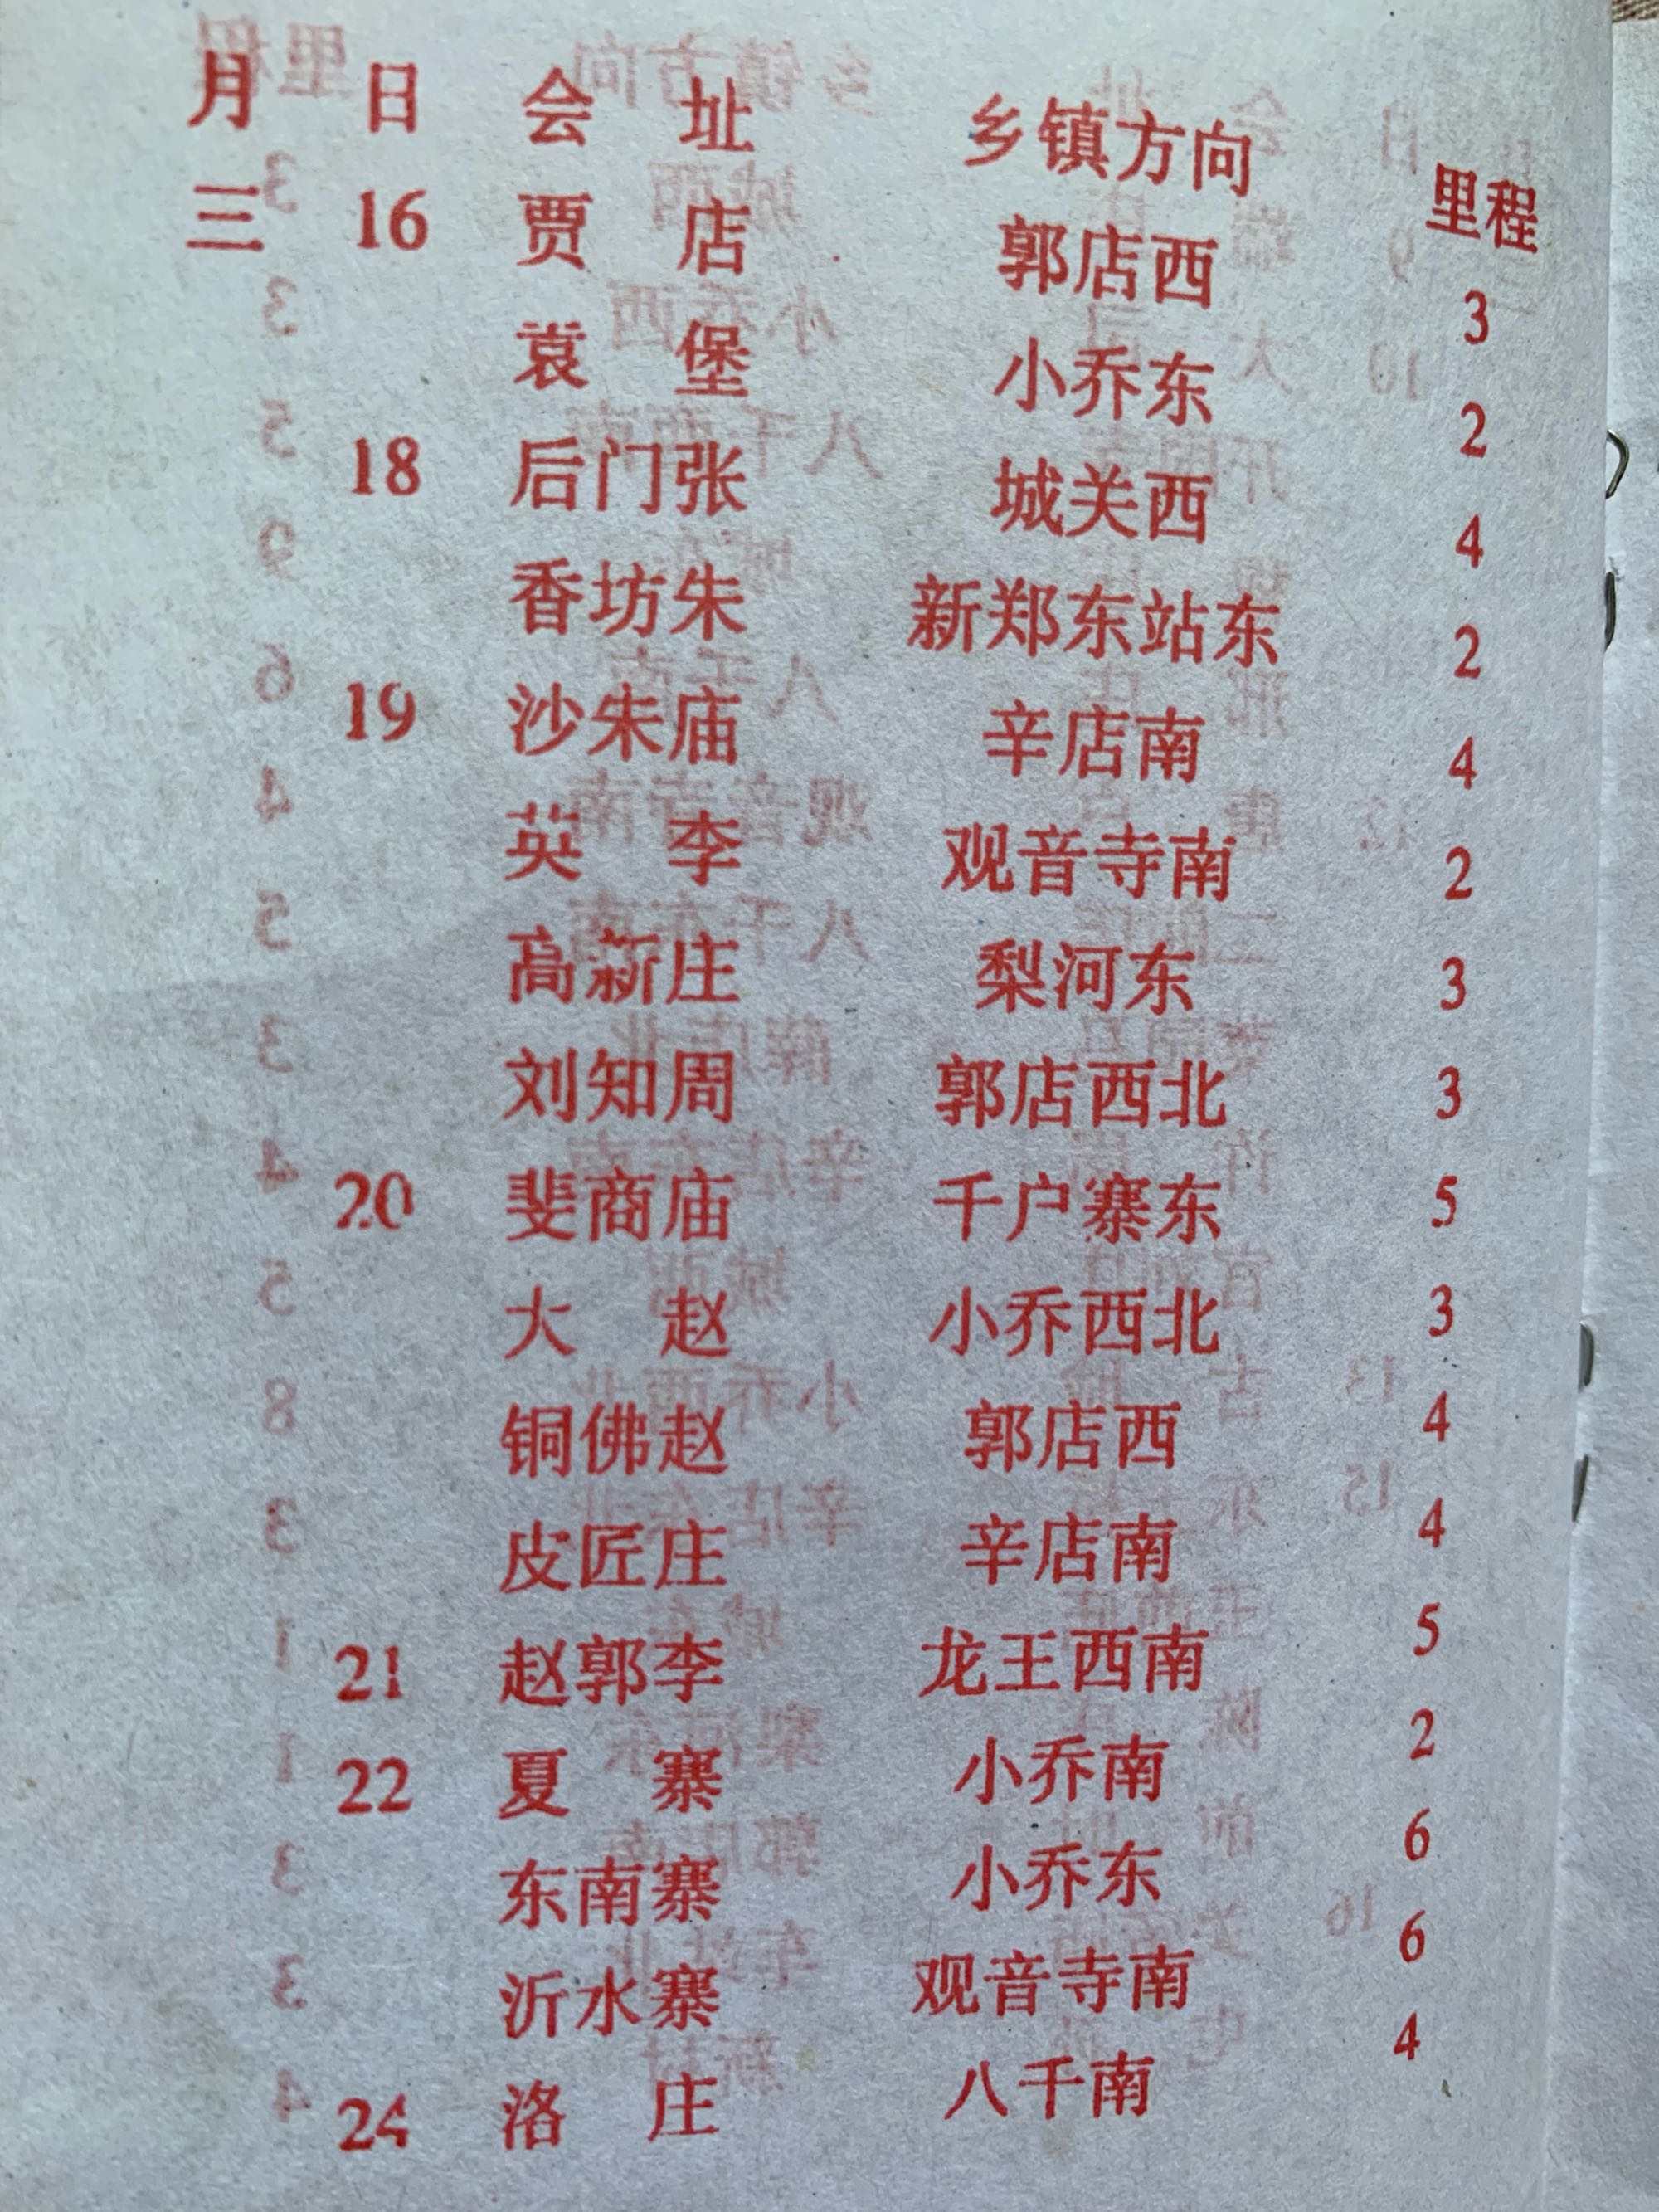 月 日 会 址 乡镇方向 里程
三 16 贾 店 郭店西 3
袁 堡 小乔东 2
18 后门张 城关西 4
香坊朱 新郑东站东 2
19 沙朱庙 辛店南 4
英 李 观音寺南 2
高新庄 梨河东 3
刘知周 郭店西北 3
20 斐商庙 千户寨东 5
大 赵 小乔西北 3
铜佛赵 郭店西 4
皮匠庄 辛店南 4
21 赵郭李 龙王西南 5
22 夏 寨 小乔南 2
东南寨 小乔东 6
沂水寨 观音寺南 6
24 洛 庄 八千南 4